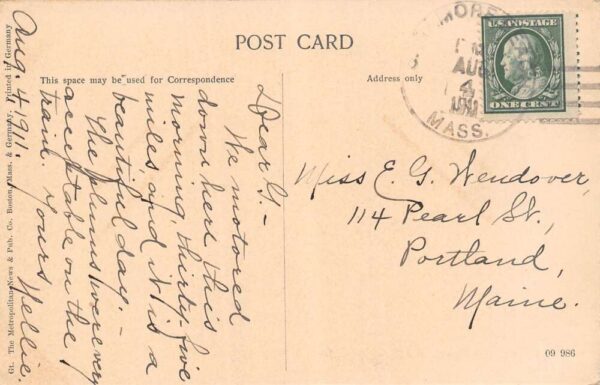 POST CARD
This space may be used for Correspondence
Address only
Aug. 4, 1911.
Dear G. –
We motored
down here this
morning, thirty-five
miles, and it is a
beautiful day. –
The plums were very
acceptable on the
train. Yours,
Nellie.
U.S. POSTAGE
ONE CENT
AUG
4
MASS.
Miss E. G. Wendover,
114 Pearl St.,
Portland,
Maine.
09 986
Gt. The Metropolitan News & Pub. Co. Boston, Mass. & Germany. Printed in Germany